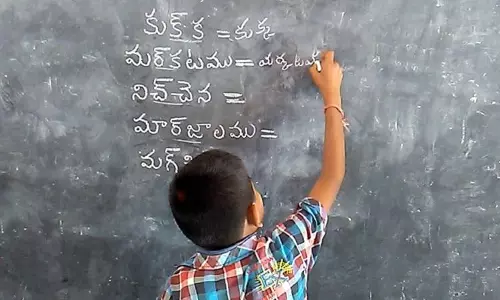 కుక్‌క = కుక్క
మర్‌కటము = మర్కటమ
నిచ్‌చెన =
మార్‌జాలము =
మగ్